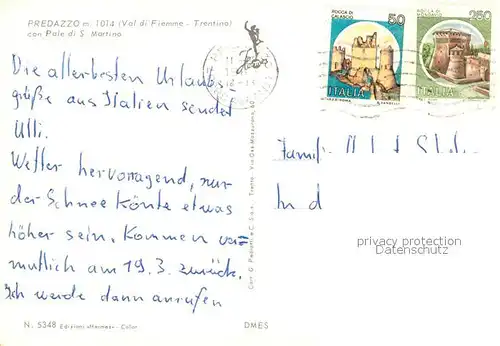 PREDAZZO m. 1014 (Val di Fiemme - Trentino)
con Pale di S. Martino
ROCCA DI
CALASCIO
50
ITALIA
250
ITALIA
Die allerbesten Urlaubs=
grüße aus Italien sendet
Ulli.
Wetter hervorragend, nur
der Schnee könte etwas
höher sein. Kommen ver=
mutlich am 19.3. zurück.
Ich werde dann anrufen
privacy protection
Datenschutz
N. 5348 Edizioni «Hermes» - Color
DMES